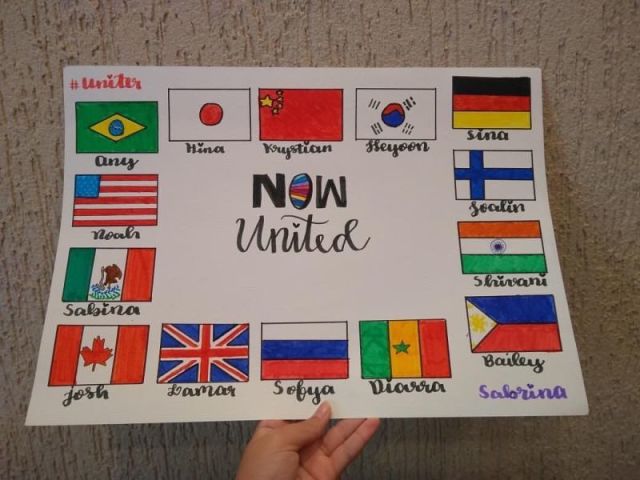 #uniter
Any
Hina
Krystian
Heyoon
Sina
Noah
NOW
United
Joalin
Sabina
Shivani
Josh
Lamar
Sofya
Diarra
Bailey
Sabrina